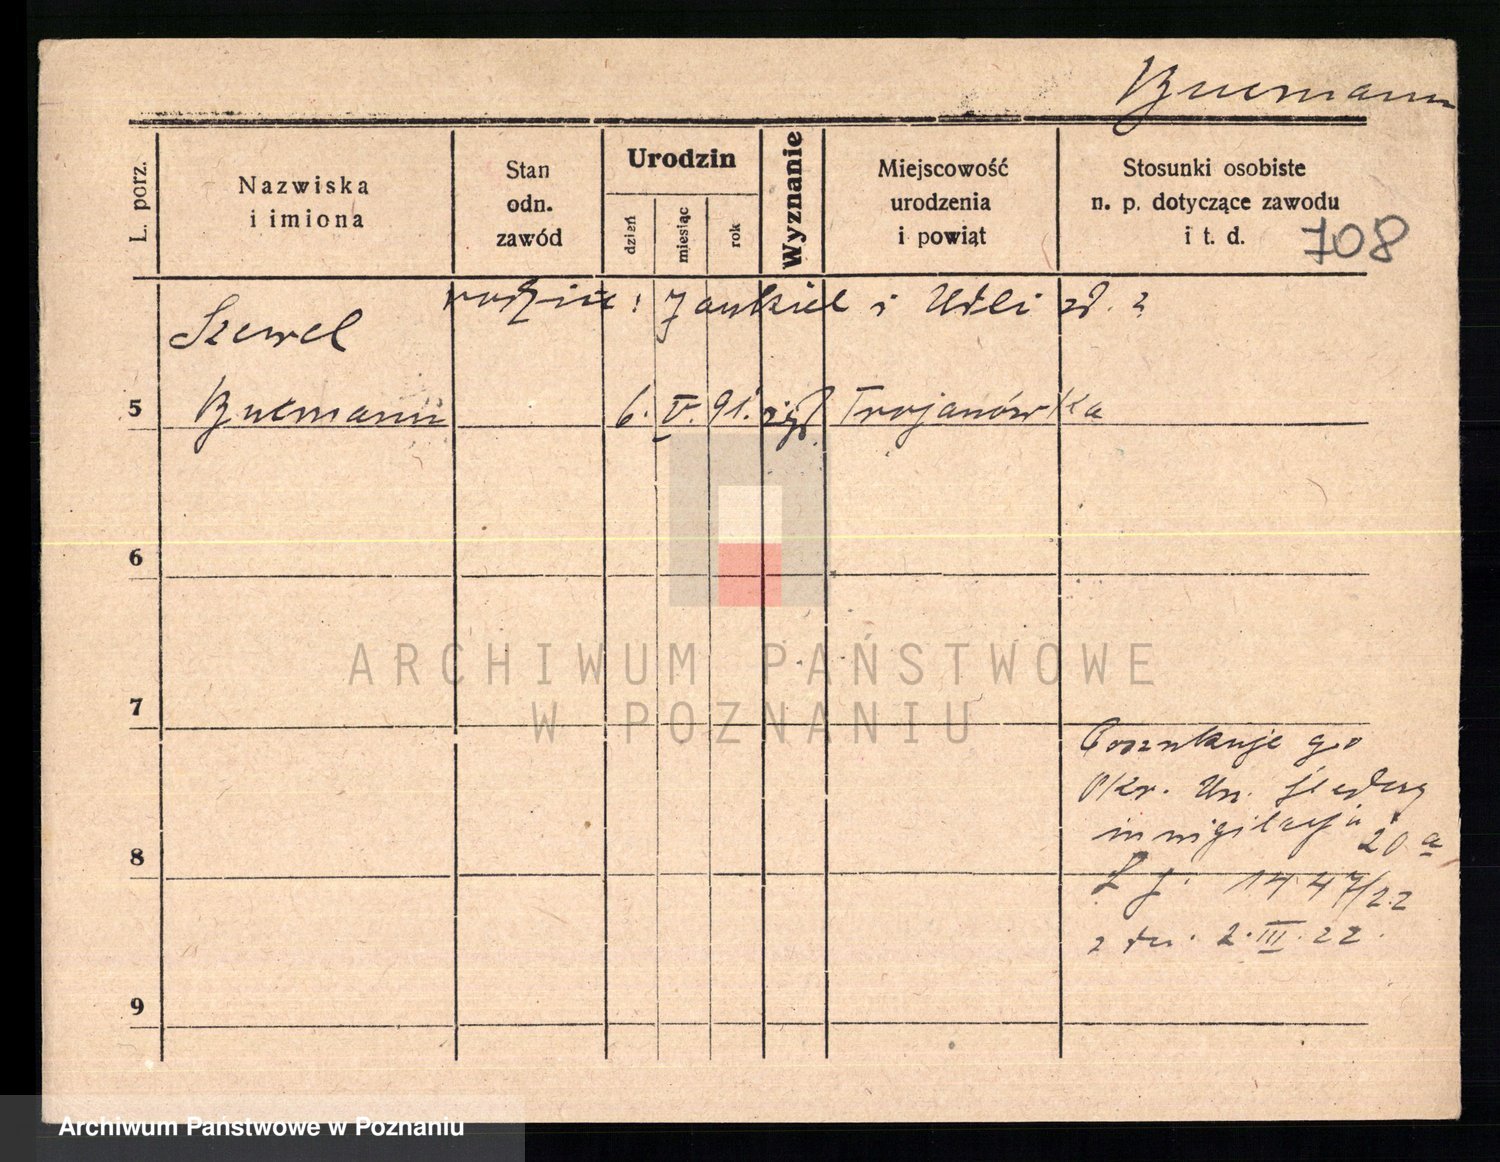 L. porz.
Nazwiska
i imiona
Stan
odn.
zawód
Urodzin
dzień
miesiąc
rok
Wyznanie
Miejscowość
urodzenia
i powiąt
Stosunki osobiste
n. p. dotyczące zawodu
i t. d.
708
Szewel
5
6. V. 91. Trojanówka
6
7
8
9
Poszukuje go
Okr. Urz.
inwigilacja
L. j. 1447/22
z dn. 2.III.22.
ARCHIWUM PAŃSTWOWE
W POZNANIU
Archiwum Państwowe w Poznaniu